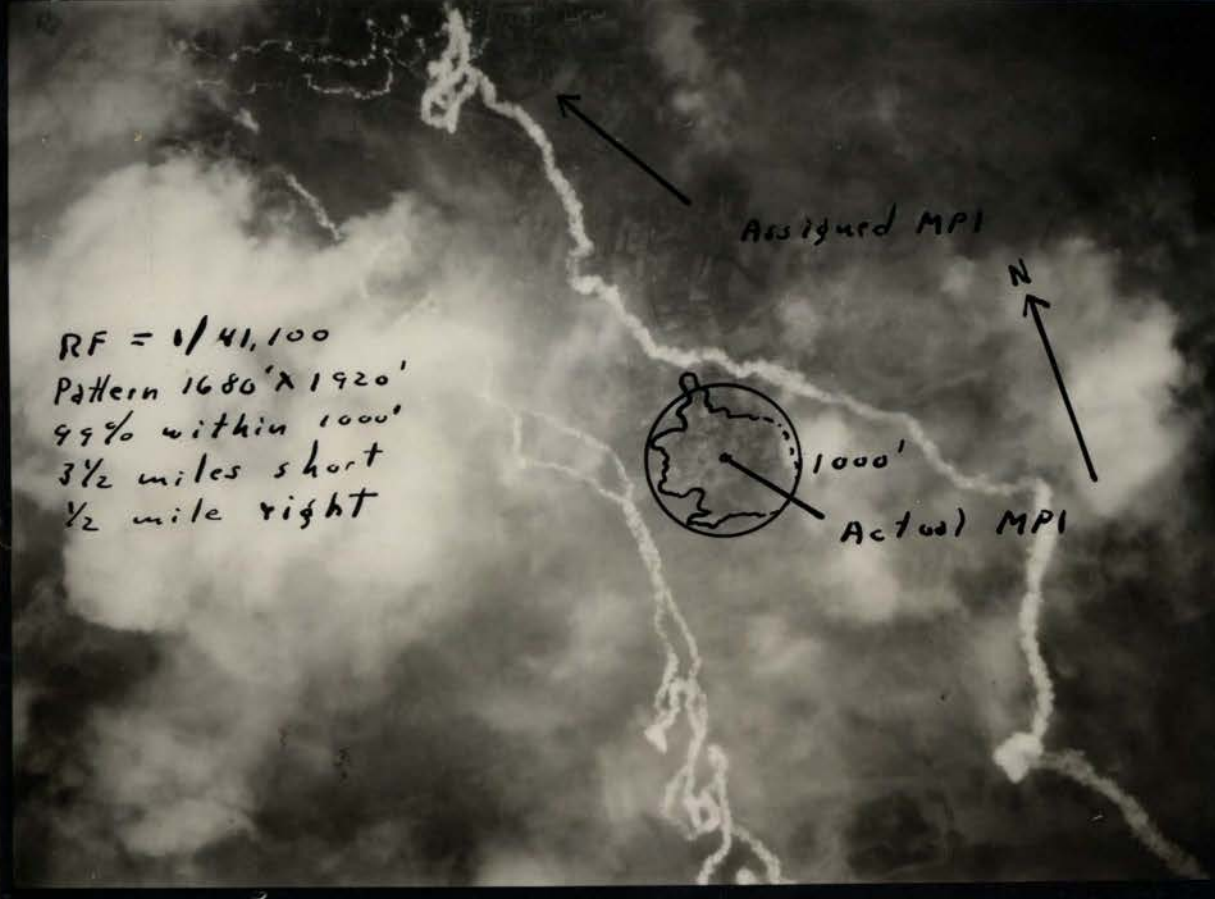 Assigned MPI
N
RF = 1/41,100
Pattern 1680' X 1920'
99% within 1000'
3½ miles short
½ mile right
1000'
Actual MPI